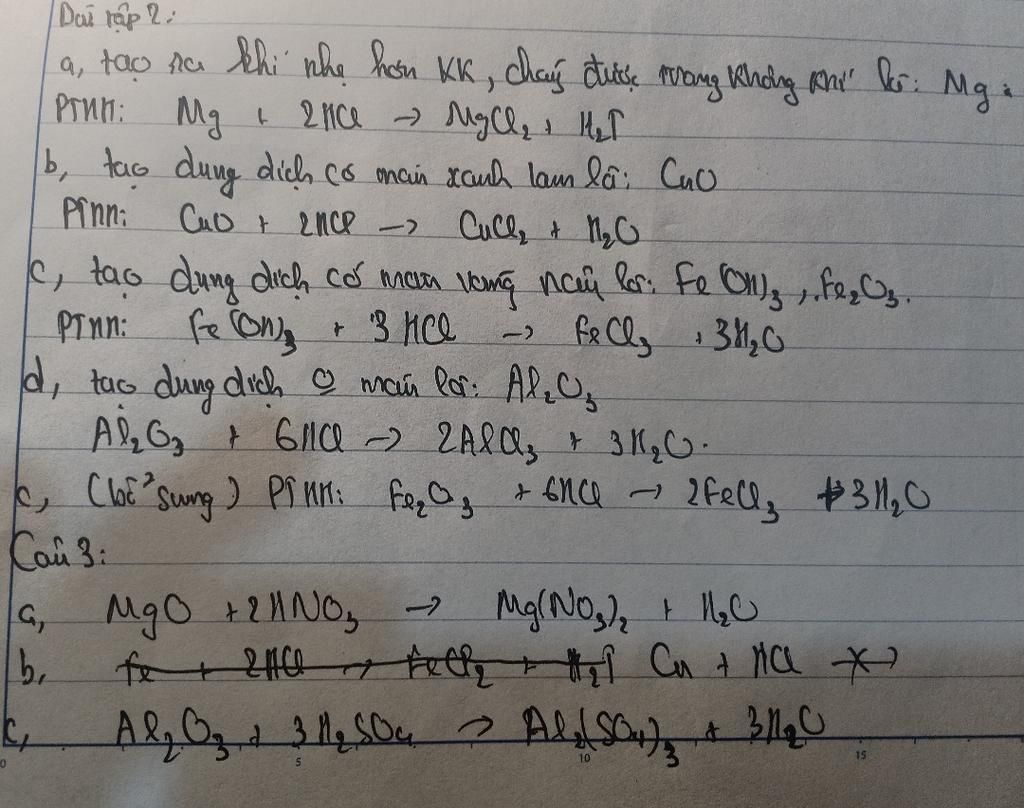 Bài tập 2:
a, tạo ra khí nhẹ hơn KK, cháy được trong không khí là: Mg
PTHH: Mg + 2HCl → MgCl₂ + H₂↑
b, tạo dung dịch có màu xanh lam là: CuO
PTHH: CuO + 2HCl → CuCl₂ + H₂O
c, tạo dung dịch có màu vàng nâu là: Fe(OH)₃, Fe₂O₃.
PTHH: Fe(OH)₃ + 3HCl → FeCl₃ + 3H₂O
d, tạo dung dịch màu là: Al₂O₃
Al₂O₃ + 6HCl → 2AlCl₃ + 3H₂O.
c, (bổ sung) PTHH: Fe₂O₃ + 6HCl → 2FeCl₃ + 3H₂O
Câu 3:
a, MgO + 2HNO₃ → Mg(NO₃)₂ + H₂O
b, Fe + 2HCl → FeCl₂ + H₂↑ Cu + HCl -x->
c, Al₂O₃ + 3H₂SO₄ → Al₂(SO₄)₃ + 3H₂O
0 5 10 15